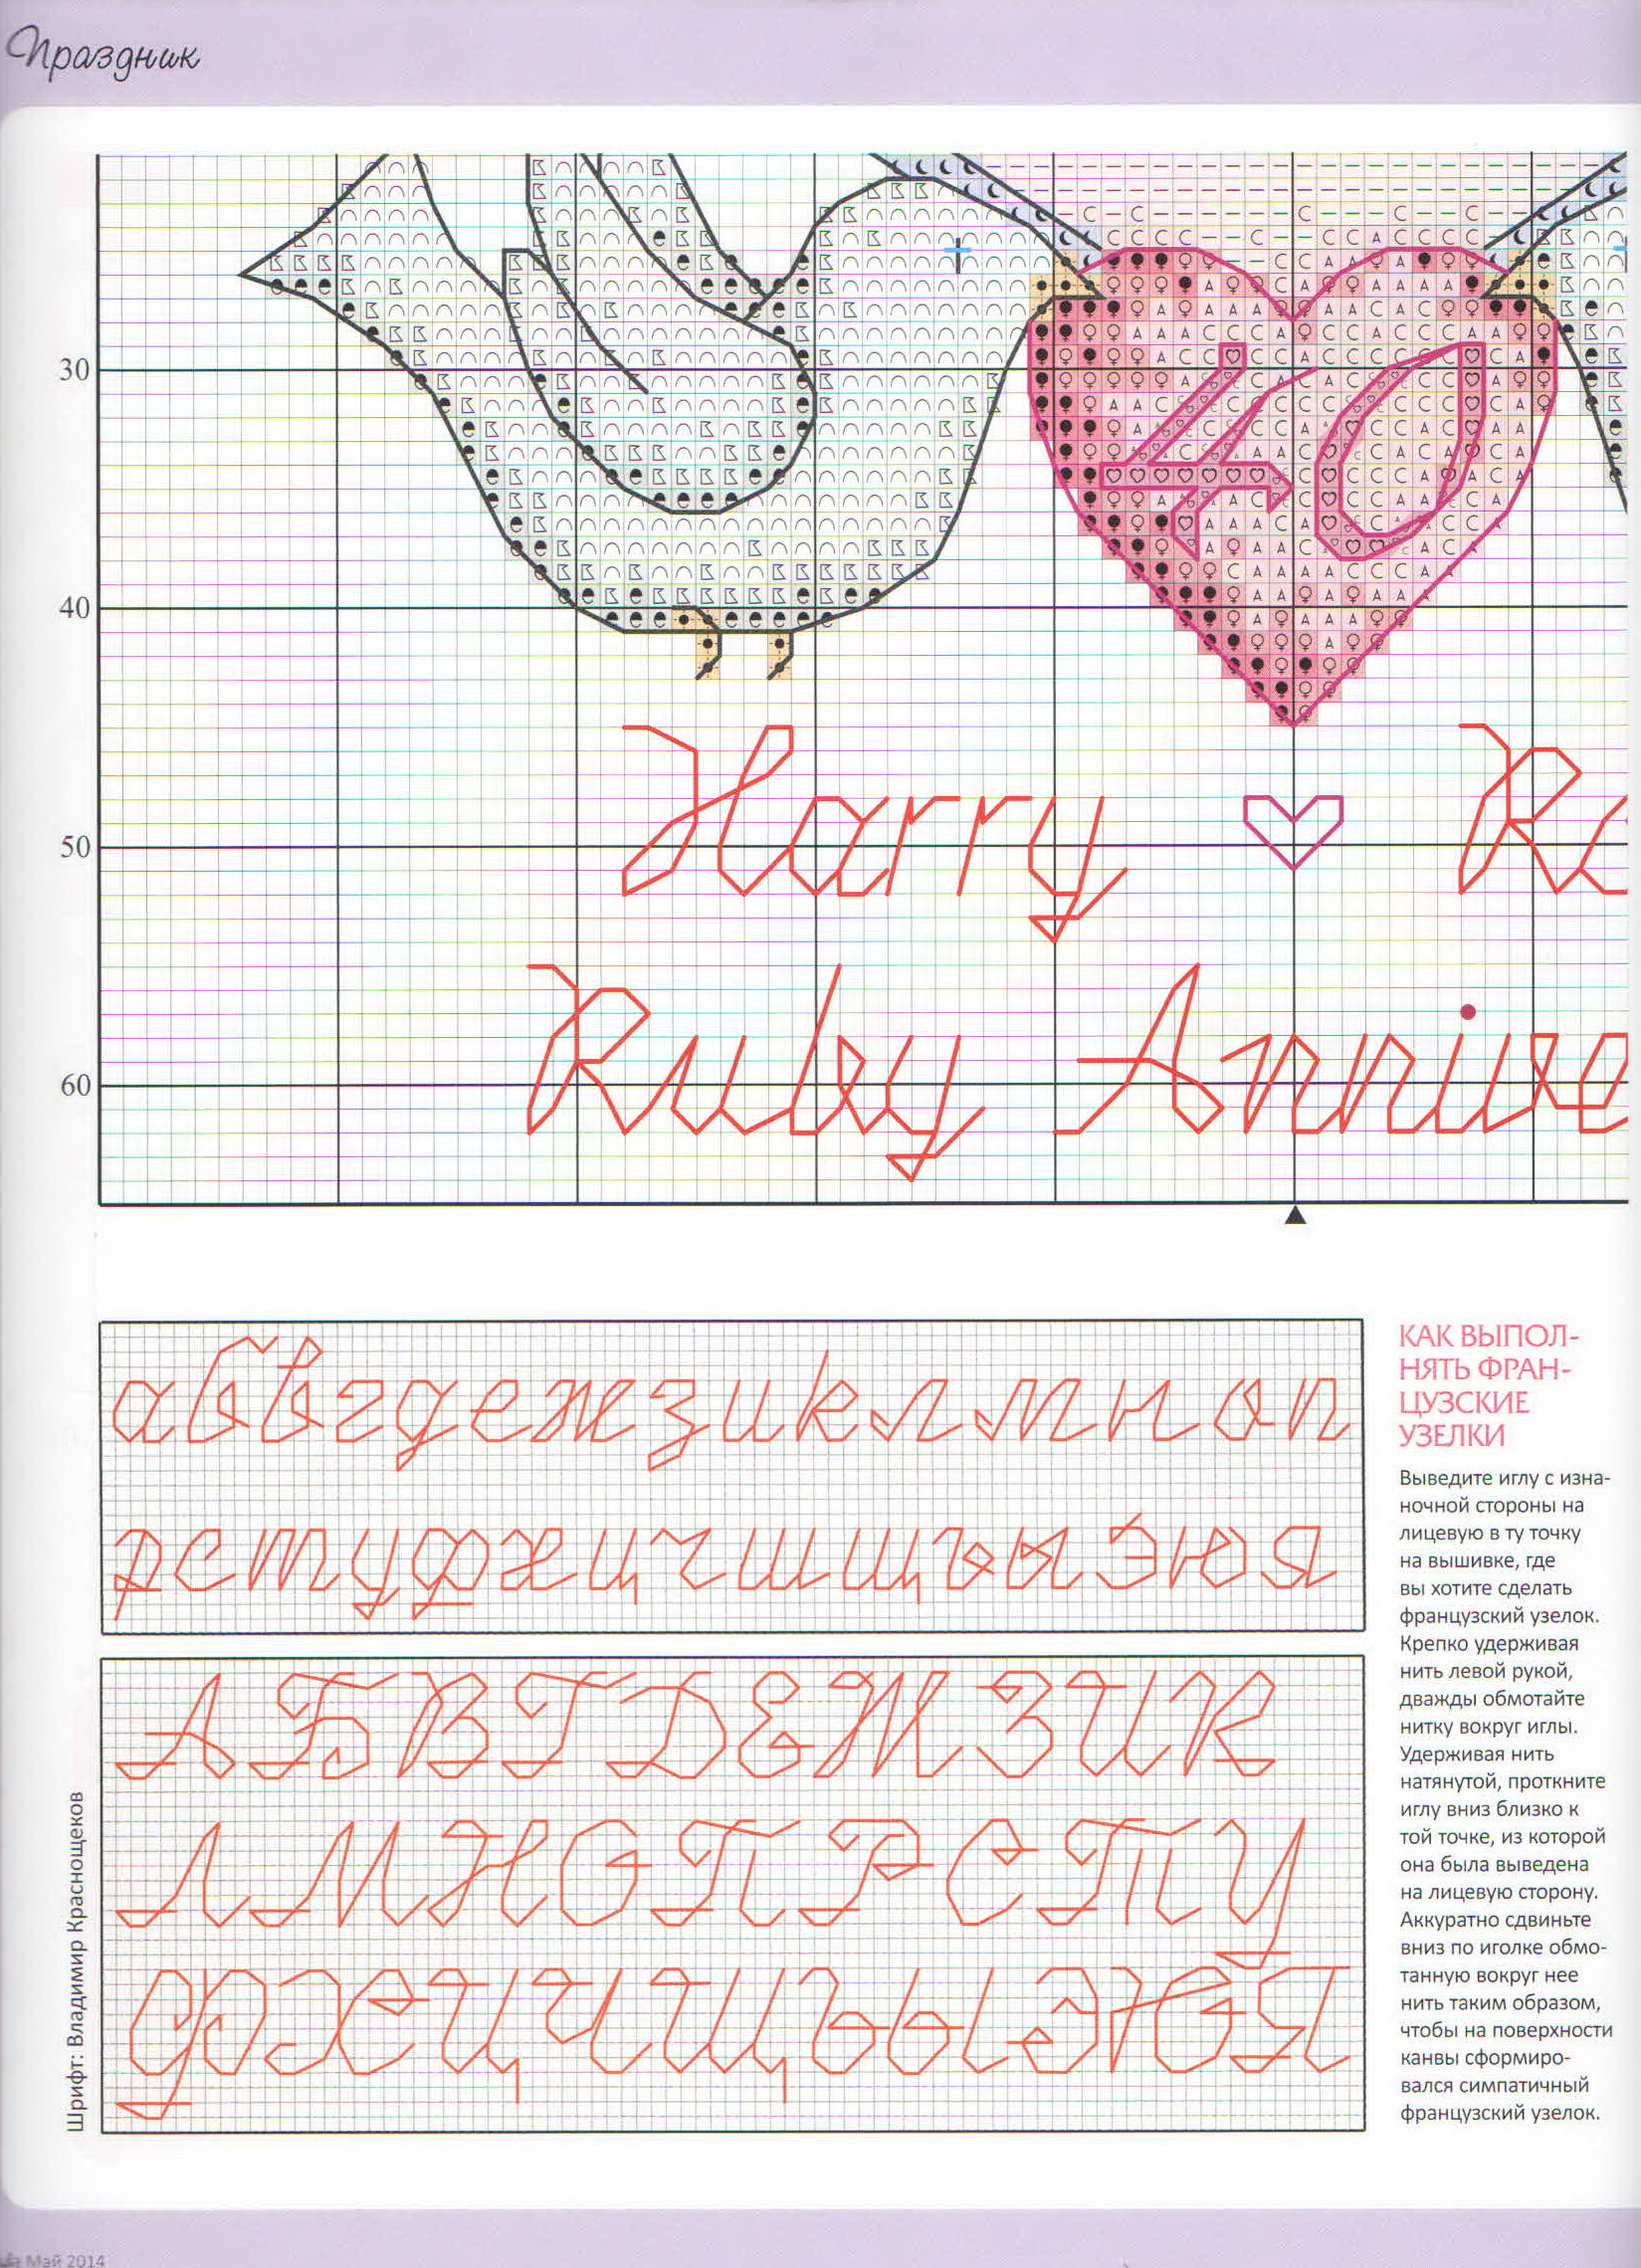 Праздник
30
40
50
60
40
Harry
Ruby Annive
КАК ВЫПОЛ-
НЯТЬ ФРАН-
ЦУЗСКИЕ
УЗЕЛКИ
Выведите иглу с изна-
ночной стороны на
лицевую в ту точку
на вышивке, где
вы хотите сделать
французский узелок.
Крепко удерживая
нить левой рукой,
дважды обмотайте
нитку вокруг иглы.
Удерживая нить
натянутой, проткните
иглу вниз близко к
той точке, из которой
она была выведена
на лицевую сторону.
Аккуратно сдвиньте
вниз по иголке обмо-
танную вокруг нее
нить таким образом,
чтобы на поверхности
канвы сформиро-
вался симпатичный
французский узелок.
а б в г д е ж з и к л м н о п
р с т у ф х ц ч ш щ ъ ы э ю я
А Б В Г Д Е Ж З И К
Л М Н О П Р С Т У
Ф Х Ц Ч Ш Щ Ъ Ь Ы Э Ю Я
Шрифт: Владимир Краснощеков
Май 2014